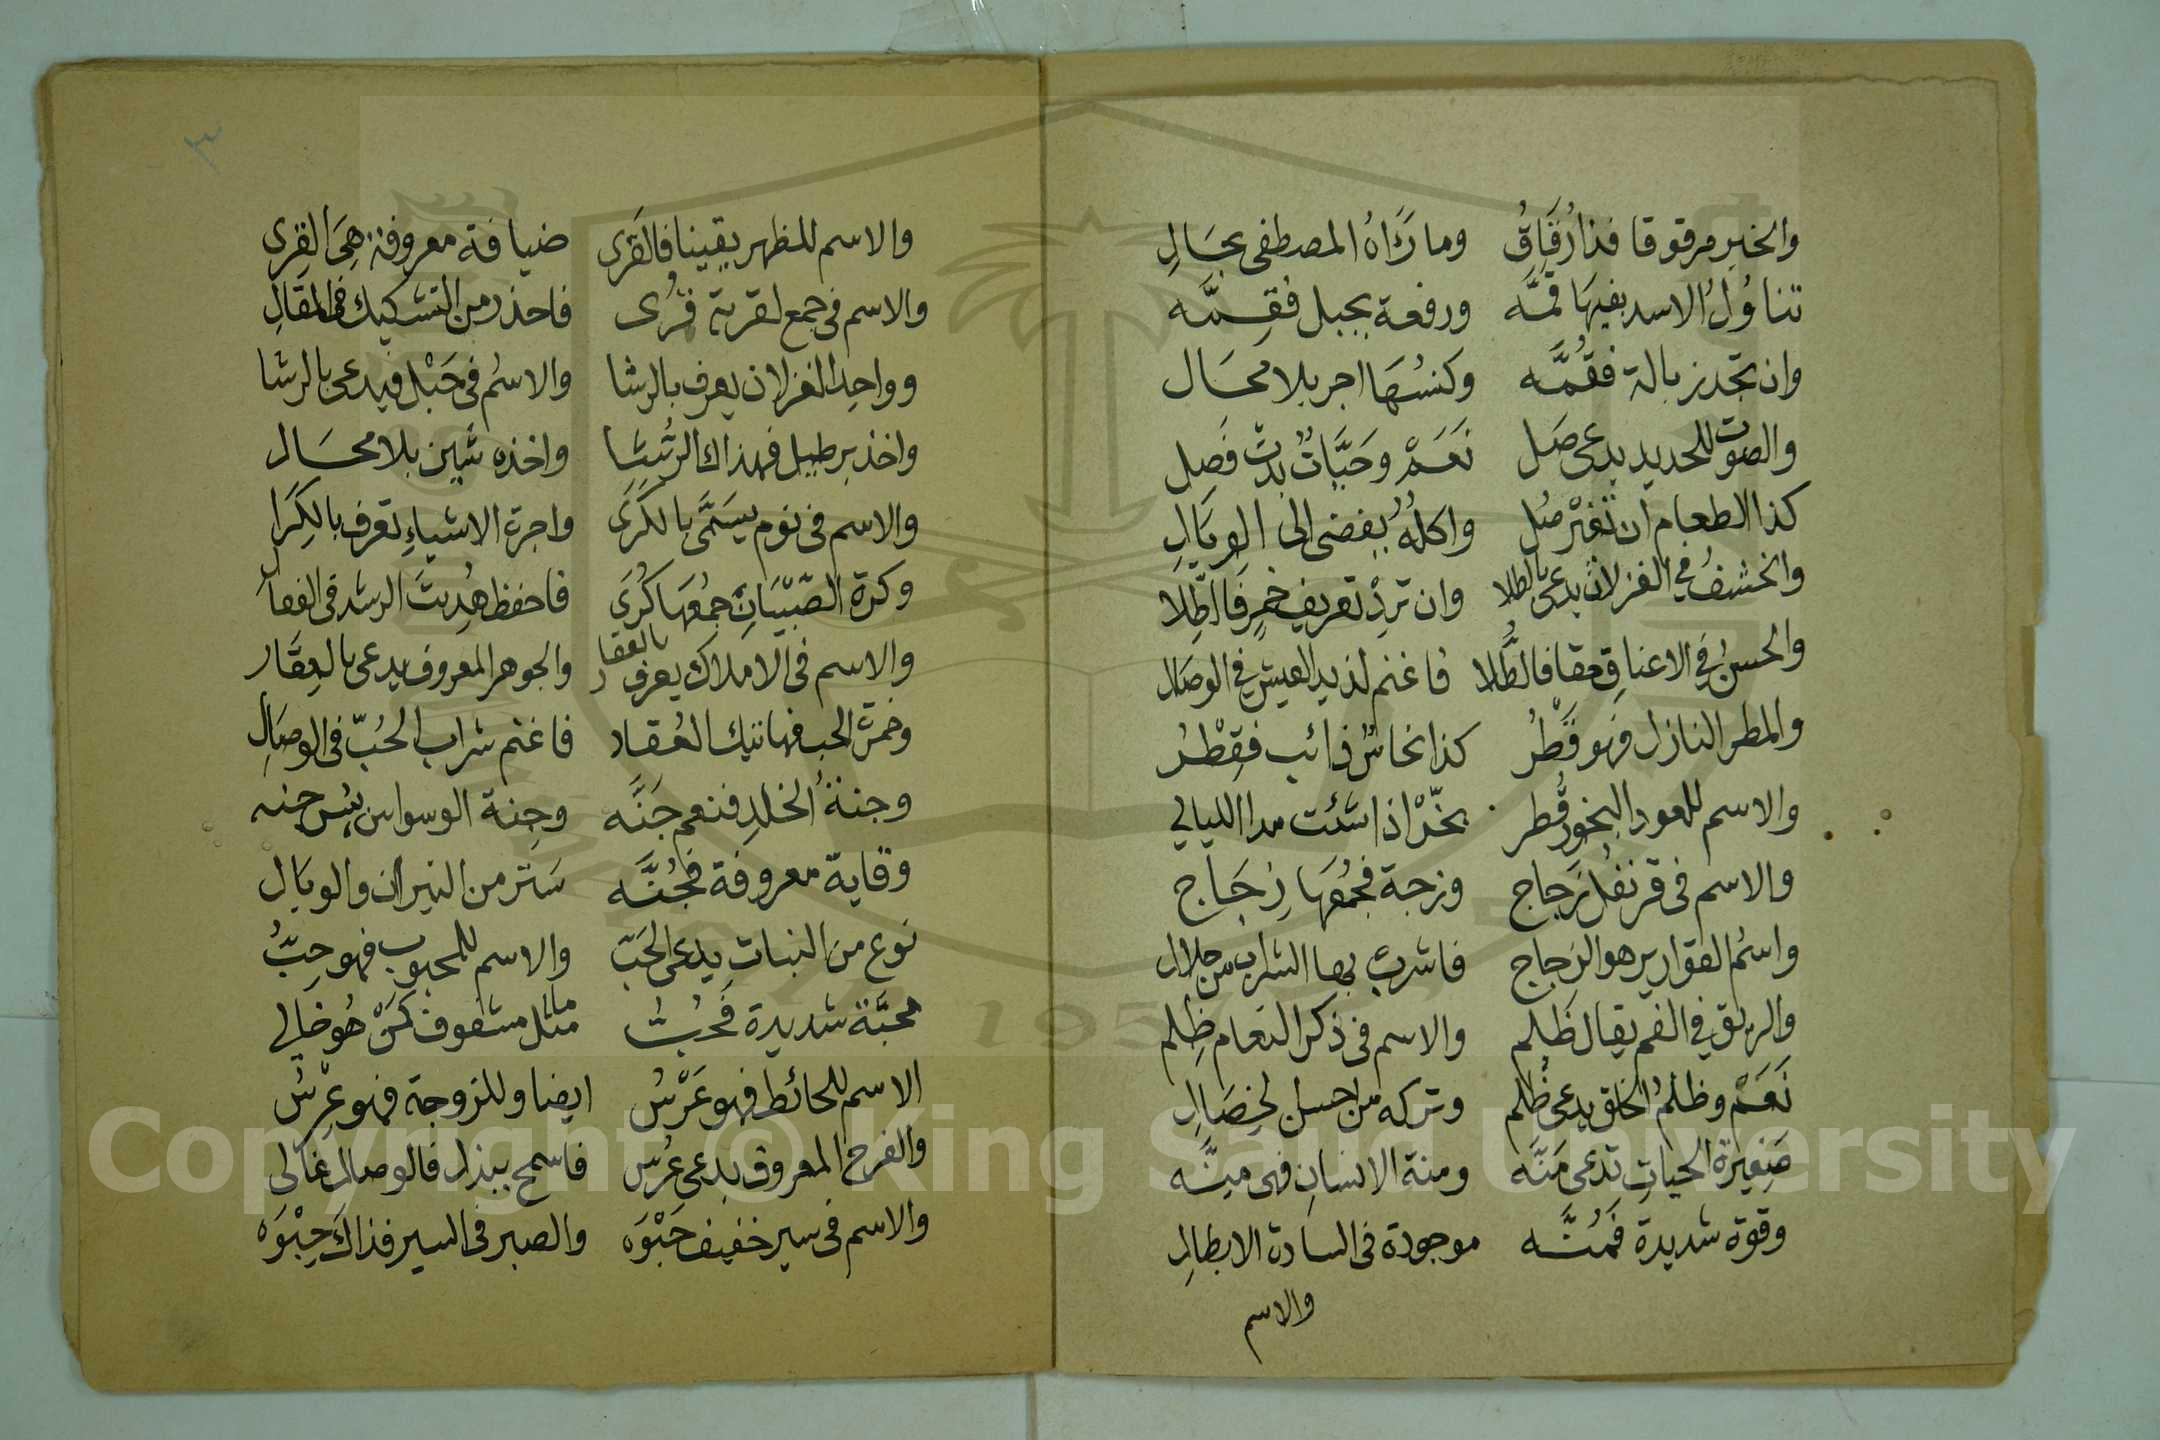 والخبز مرقوقا فذا رُقَاقُ وما رَآهُ المصطفى بحَالِ
تناوُلُ الاسد بفيهَا قَمَّه ورفعة بجبل فقِمَّه
وان تجد زبالة فقُمَّه وكنسُهَا اجر بلا محَال
والصوت للحديد يدعى صَل نَعَمْ وحَيَّاتٌ بدت فَصِل
كذا الطعام ان تَغيَّر صُل واكلُهُ يفضى الى الوبَالِ
والخشفُ في الغزلان يدعى بالطلا وان تردْ تعريف خمرٍ فَالطِّلا
والحسنُ في الاعناقِ حقا فالطُّلا فاغنم لذيذ العيش في الوصَال
والمطر النازل فهو قَطْرُ كذا نحاسٌ ذائب فقِطْرُ
والاسم للعود البخور قُطر بخّرْ اذا شئت مدا الليالي
والاسم فى قرنفُل زَجاج وزجة فجمعُهَا زِجَاج
واسمُ القوارير هو الزجاج فاشرب بها الشراب من حلال
والريق في الفم يقال ظَلم والاسم فى ذكر النعام ظِلم
نَعَمْ وظلمُ الخلق يدعى ظُلم وتركه من احسن الخِصَالِ
صَغيرة الحياتِ تدعى مَنَّه ومنة الانسانِ فهى مِنَّه
وقوة شديدة فَمُنَّه موجودة فى السادة الابطالِ
والاسم
٣
والاسم للظهر يقينا فالقَرَى ضيافة معروفة هِىَ القِرى
والاسم فى جمع لقرية قُرى فاحذر من التشكيك فى المقالِ
وواحد الغزلان يعرف بالرشا والاسُم فى حَبْل فيدعى بالرشا
واخذ برطيل فهذاك الرُّشا واخذه شَين بلا محَال
والاسم فى نوم يسَمَّى بالكَرَى واجرة الاشياءِ تعرف بالكِرَا
وكرة الصِّبْيَانِ جمعُهَا كُرَى فاحفظ هُدِيتَ الرشد فى الفعال
والاسم فى الاملاك يعرف بالعقار والجوهر المعروف يدعى بالعِقَار
وخمرة الحب فهاتيك العُقار فاغنم شراب الحُبّ فى الوصَالِ
وجنةُ الخلدِ فنعم جَنَّه وجِنة الوسواس بئس جِنه
وقاية معروفة فجُنَّه سَتر من النيران والوبَال
نوع من النبات يدعى الحَبّ والاسم للمحبوب فهو حِبُّ
محبَّة شديدة فَحُبُّ ما مثل مشغوف كمَنْ هُو خالي
الاسم للحائط فهو عَرْسُ ايضا وللزوجة فهو عِرْسُ
والفرح المعروف يدعى عُرْس فاسمح ببذل فالوصال غالى
والاسم فى سير خفيف حَبْوَه والصبر فى السير فذاكَ حِبْوَه
Copyright © King Saud University
1957